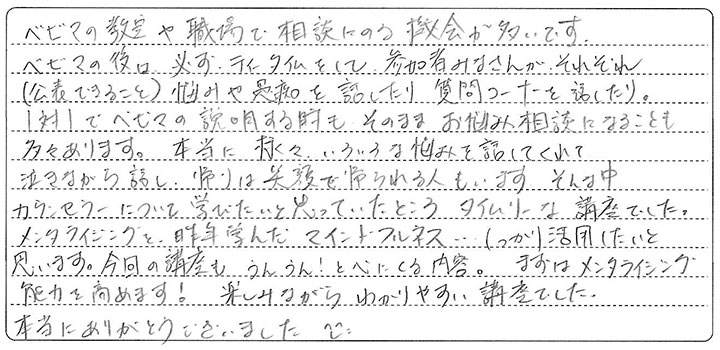 ベビマの教室や職場で相談にのる機会が多いです。
ベビマの後は、必ず、ティータイムをして、参加者みなさんが、それぞれ
(公表できること)悩みや愚痴を話したり 質問コーナーを話したり。
1対1でベビマの説明する時も そのまま お悩み相談になることも
多々あります。 本当に 様々、いろいろな悩みを話してくれて
泣きながら話し、帰りは笑顔で帰られる人もいます そんな中
カウンセラーについて 学びたいと思っていたところ タイムリーな 講座でした。
メンタライジングと、昨年学んだ マインドフルネス… しっかり活用したいと
思います。今回の講座も うんうん!と心にくる内容。 まずは メンタライジング
能力を高めます! 楽しみながら わかりやすい 講座でした。
本当にありがとうございました